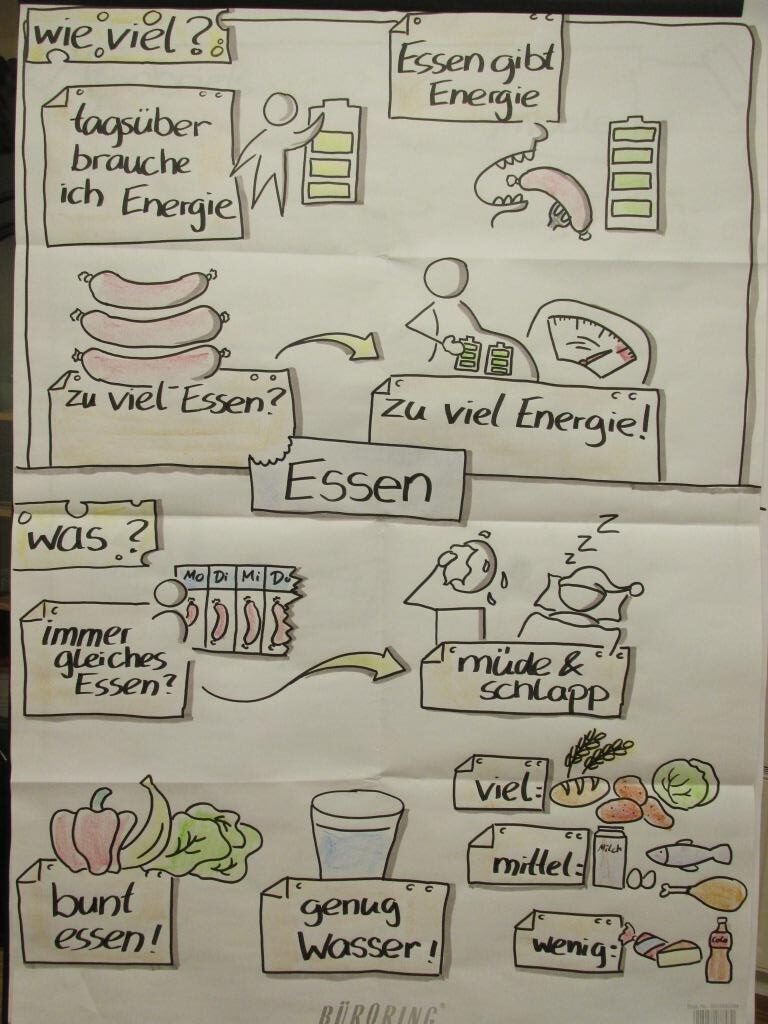 wie viel?
Essen gibt
Energie
tagsüber
brauche
ich Energie
zu viel Essen?
zu viel Energie!
Essen
was?
Mo Di Mi Do
immer
gleiches
Essen?
z z Z Z
müde &
schlapp
viel:
mittel:
Milch
bunt
essen!
genug
Wasser!
wenig:
Cola
BÜRORING®